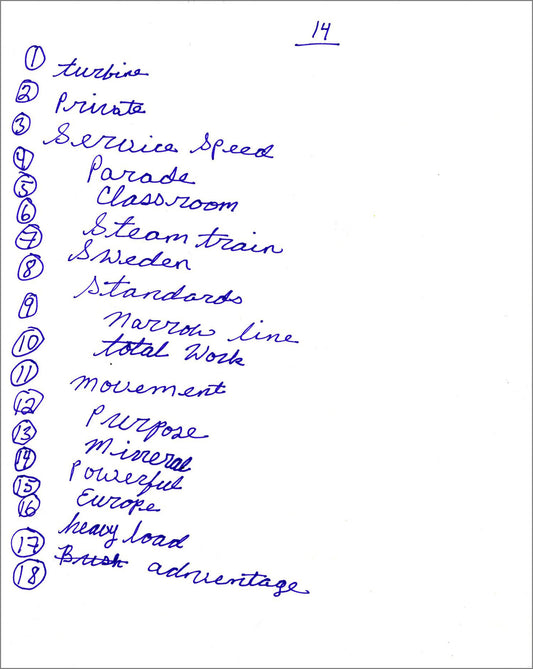 14
① turbine
② Private
③ Service Speed
④ Parade
⑤ Classroom
⑥ Steam train
⑦ Sweden
⑧ Standards
⑨ Narrow line
⑩ total Work
⑪ movement
⑫ Purpose
⑬ Mineral
⑭ Powerful
⑮ Europe
⑯ heavy load
⑰ Bush advantage
⑱